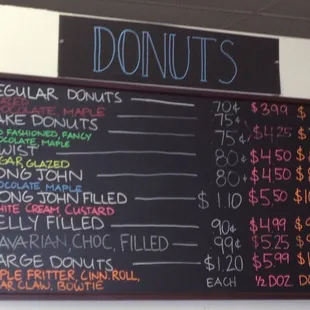 DONUTS
EGULAR DONUTS 70¢ $3.99 $
CHOCOLATE, MAPLE
AKE DONUTS 75¢
FASHIONED, FANCY 75¢ $4.25 $
CHOCOLATE, MAPLE
WIST 80¢ $4.50
GAR, GLAZED
ONG JOHN 80¢ $4.50
OCOLATE MAPLE
ONG JOHN FILLED $1.10 $5.50
HITE CREAM CUSTARD
ELLY FILLED 90¢ $4.99
AVARIAN, CHOC, FILLED 99¢ $5.25
ARGE DONUTS $1.20 $5.99
PLE FRITTER, CINN. ROLL, EACH 1/2 DOZ
AR CLAW, BOWTIE